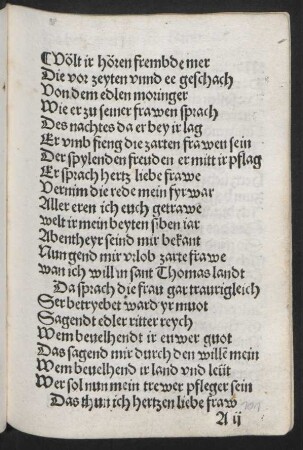 Wölt ir hören frembde mer
Die vor zeyten vnnd ee geschach
Von dem edlen moringer
Wie er zu seiner frawen sprach
Des nachtes da er bey ir lag
Er vmb fieng die zarten frawen sein
Der spylenden freuden er mitt ir pflag
Er sprach hertz liebe frawe
Vernim die rede mein fyrwar
Aller eren ich euch getrawe
welt ir mein beyten siben iar
Abentheyr seind mir bekant
Nun gend mir vrlob zarte frawe
wan ich will in sant Thomas landt
Da sprach die frau gar traurigleich
Ser betryebet ward yr muot
Sagendt edler ritter reych
Wem beuelhendt ir euwer guot
Das sagend mir durch den wille mein
Wem beuelhend ir land vnd leüt
Wer sol nun mein trewer pfleger sein
Das thun ich hertzen liebe fraw
A ij